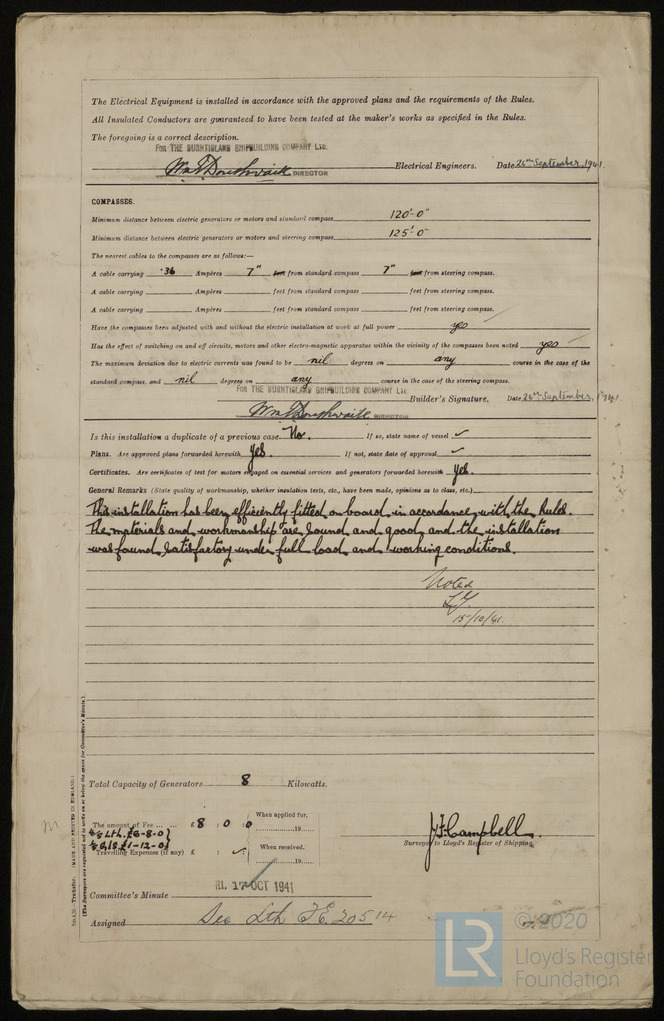 The Electrical Equipment is installed in accordance with the approved plans and the requirements of the Rules.
All Insulated Conductors are guaranteed to have been tested at the maker's works as specified in the Rules.
The foregoing is a correct description.
FOR THE BURNTISLAND SHIPBUILDING COMPANY LTD.
DIRECTOR Electrical Engineers. Date 26th September, 1941.
COMPASSES.
Minimum distance between electric generators or motors and standard compass 120'-0"
Minimum distance between electric generators or motors and steering compass 125'-0"
The nearest cables to the compasses are as follows:—
A cable carrying .36 Ampères 7" feet from standard compass 7" feet from steering compass.
A cable carrying Ampères feet from standard compass feet from steering compass.
A cable carrying Ampères feet from standard compass feet from steering compass.
Have the compasses been adjusted with and without the electric installation at work at full power yes
Has the effect of switching on and off circuits, motors and other electro-magnetic apparatus within the vicinity of the compasses been noted yes
The maximum deviation due to electric currents was found to be nil degrees on any course in the case of the
standard compass, and nil degrees on any course in the case of the steering compass.
FOR THE BURNTISLAND SHIPBUILDING COMPANY LTD.
DIRECTOR Builder's Signature. Date 26th September, 1941
Is this installation a duplicate of a previous case No. If so, state name of vessel ✓
Plans. Are approved plans forwarded herewith Yes. If not, state date of approval ✓
Certificates. Are certificates of test for motors engaged on essential services and generators forwarded herewith Yes.
General Remarks (State quality of workmanship, whether insulation tests, etc., have been made, opinions as to class, etc.)
This installation has been efficiently fitted on board in accordance with the Rules.
The materials and workmanship are sound and good and the installation
was found satisfactory under full load and working conditions.
Noted
15/10/41
Total Capacity of Generators 8 Kilowatts.
The amount of Fee ... £8 : 0 : 0 When applied for,
4/5 Lth. £6-8-0} 19
1/5 Gls £1-12-0}
Travelling Expenses (if any) £ : ✓ : When received.
19
J F Campbell.
Surveyor to Lloyd's Register of Shipping.
Committee's Minute FRI. 17 OCT 1941
Assigned See Lth F.E. 20514
Transfer. (MADE AND PRINTED IN ENGLAND.)
(The Surveyors are requested not to write on or below the space for Committee's Minute.)
LR
© 2020
Lloyd's Register
Foundation